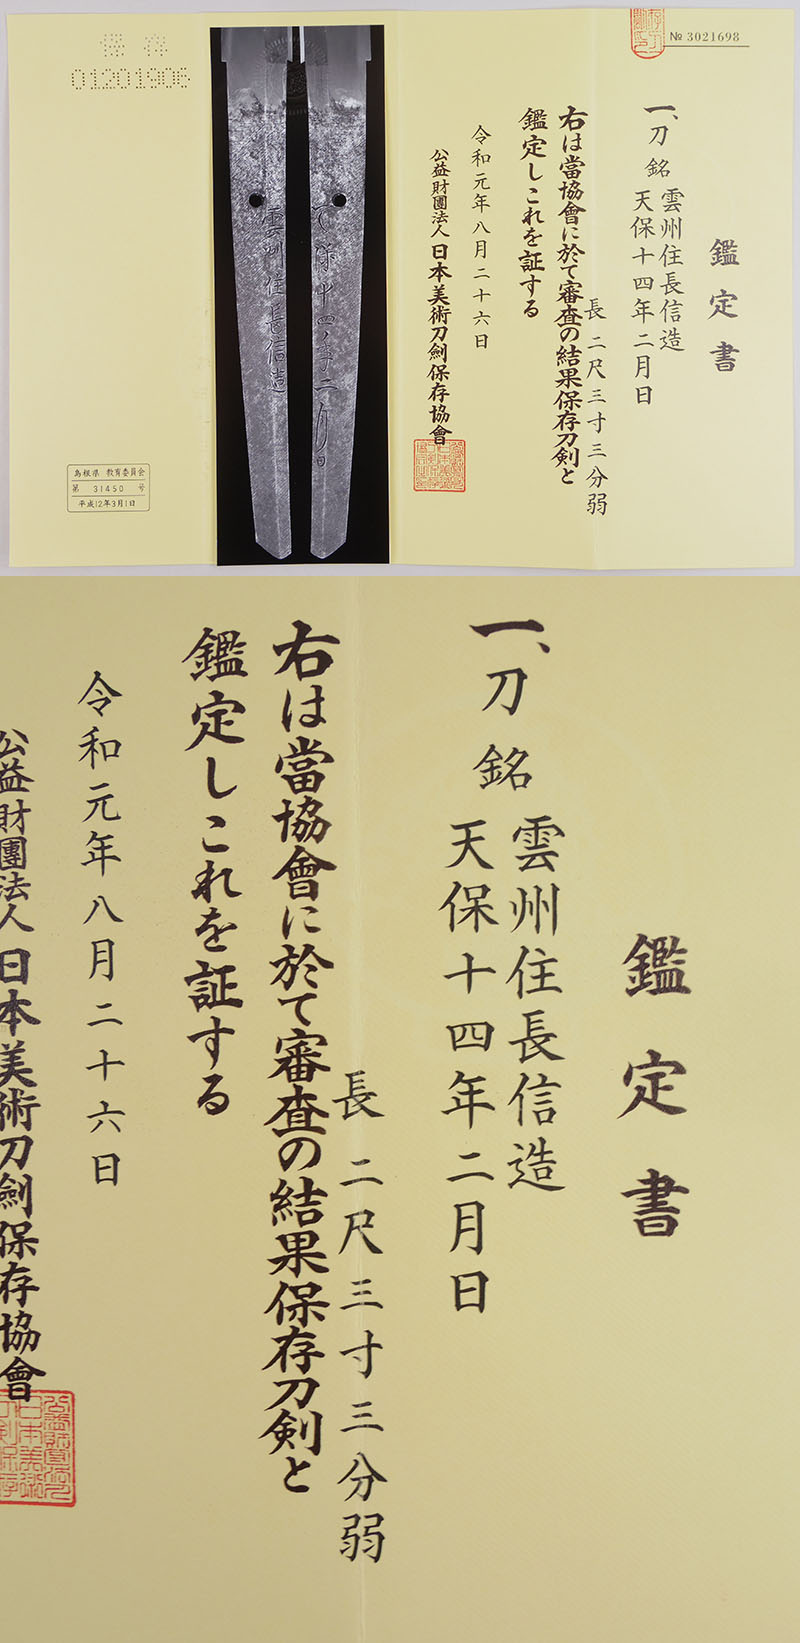 № 3021698
鑑定書
一、刀 銘 雲州住長信造
天保十四年二月日
長 二尺三寸三分弱
右は當協會に於て審査の結果保存刀剣と
鑑定しこれを証する
令和元年八月二十六日
公益財團法人 日本美術刀劍保存協會
天保十四年二月日
雲州住長信造
保存
01201906
島根県 教育委員会
第 31450 号
平成12年3月1日
鑑定書
一、刀 銘 雲州住長信造
天保十四年二月日
長 二尺三寸三分弱
右は當協會に於て審査の結果保存刀剣と
鑑定しこれを証する
令和元年八月二十六日
公益財團法人 日本美術刀劍保存協會